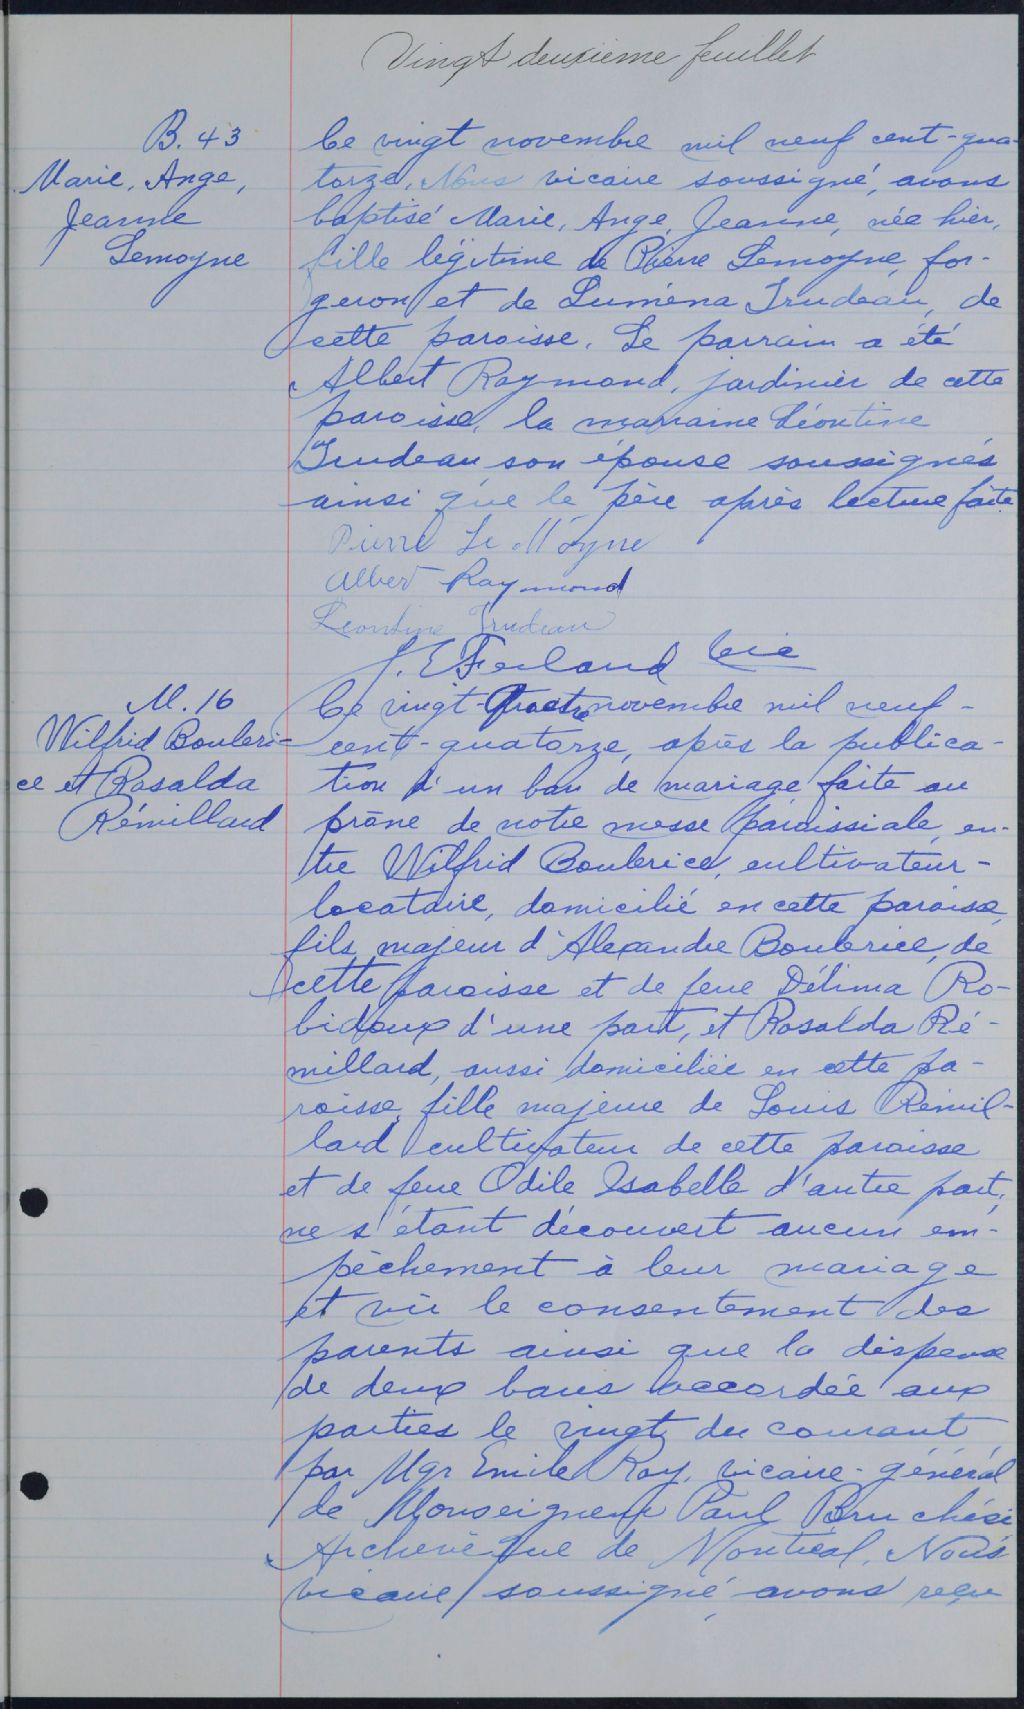 Vingt deuxième feuillet
B. 43
Marie, Ange,
Jeanne
Lemoyne
Ce vingt novembre mil neuf cent-qua-
torze, Nous vicaire soussigné, avons
baptisé Marie, Ange, Jeanne, née hier,
fille légitime de Pierre Lemoyne, for-
geron et de Luména Trudeau, de
cette paroisse. Le parrain a été
Albert Raymond, jardinier de cette
paroisse, la marraine Léontine
Trudeau son épouse soussignés
ainsi que le père après lecture faite
Pierre Le Moyne
Albert Raymond
Léontine Trudeau
J. E. Ferland Vic
M. 16
Wilfrid Bouleri-
ce et Rosalda
Rémillard
Ce vingt-quatre novembre mil neuf-
cent-quatorze, après la publica-
tion d'un ban de mariage faite au
prône de notre messe paroissiale, en-
tre Wilfrid Boulerice, cultivateur-
locataire, domicilié en cette paroisse,
fils majeur d'Alexandre Boulerice, de
cette paroisse et de feue Délima Ro-
bidoux d'une part, et Rosalda Ré-
millard, aussi domiciliée en cette pa-
roisse, fille majeure de Louis Rémil-
lard cultivateur de cette paroisse
et de feue Odile Isabelle d'autre part,
ne s'étant découvert aucun em-
pêchement à leur mariage
et vu le consentement des
parents ainsi que la dispense
de deux bans accordée aux
parties le vingt du courant
par Mgr Emile Roy, vicaire-général
de Monseigneur Paul Bruchési
Archevêque de Montréal, Nous
vicaire soussigné avons reçu